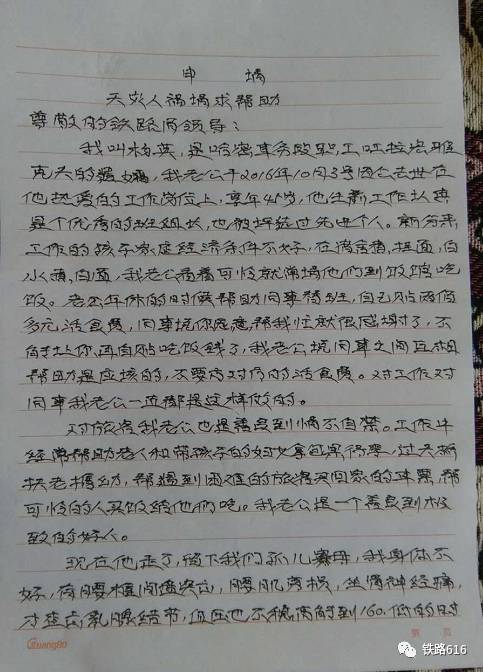 申 请
天灾人祸请求帮助
尊敬的铁路局领导：
我叫杨英，是哈密车务段职工
我老公于2016年10月3号因公去世在
他热爱的工作岗位上，享年45岁，他生前工作认真
是个优秀的班组长，也被评选过先进个人。新分来
工作的孩子家庭经济条件不好，在宿舍看，挂面，白
水煮，白面，我老公看着可怜就偶请他们到饭馆吃
饭。老公年休的时候帮助同事替班，自己贴两百
多元活食费，同事说你愿意帮我忙就很感谢了，不
能让你再自贴吃饭钱了，我老公说同事之间互相
帮助是应该的，不要同事付的活食费。对工作对
同事我老公一直都是这样做的。
对旅客我老公也是善良到情不自禁。工作中
经常帮助老人和带孩子的妇女拿包果行李，过天桥
扶老携幼，帮遇到困难的旅客买回家的车票，帮
可怜的人买饭给他们吃。我老公是一个善良到极
致的好人。
现在他走了，留下我们孤儿寡母，我身体不
好，有腰椎间盘突出，腰肌劳损，坐骨神经痛，
乳腺结节，血压也不稳高时到160，低的时
Guang80
第 页
铁路616